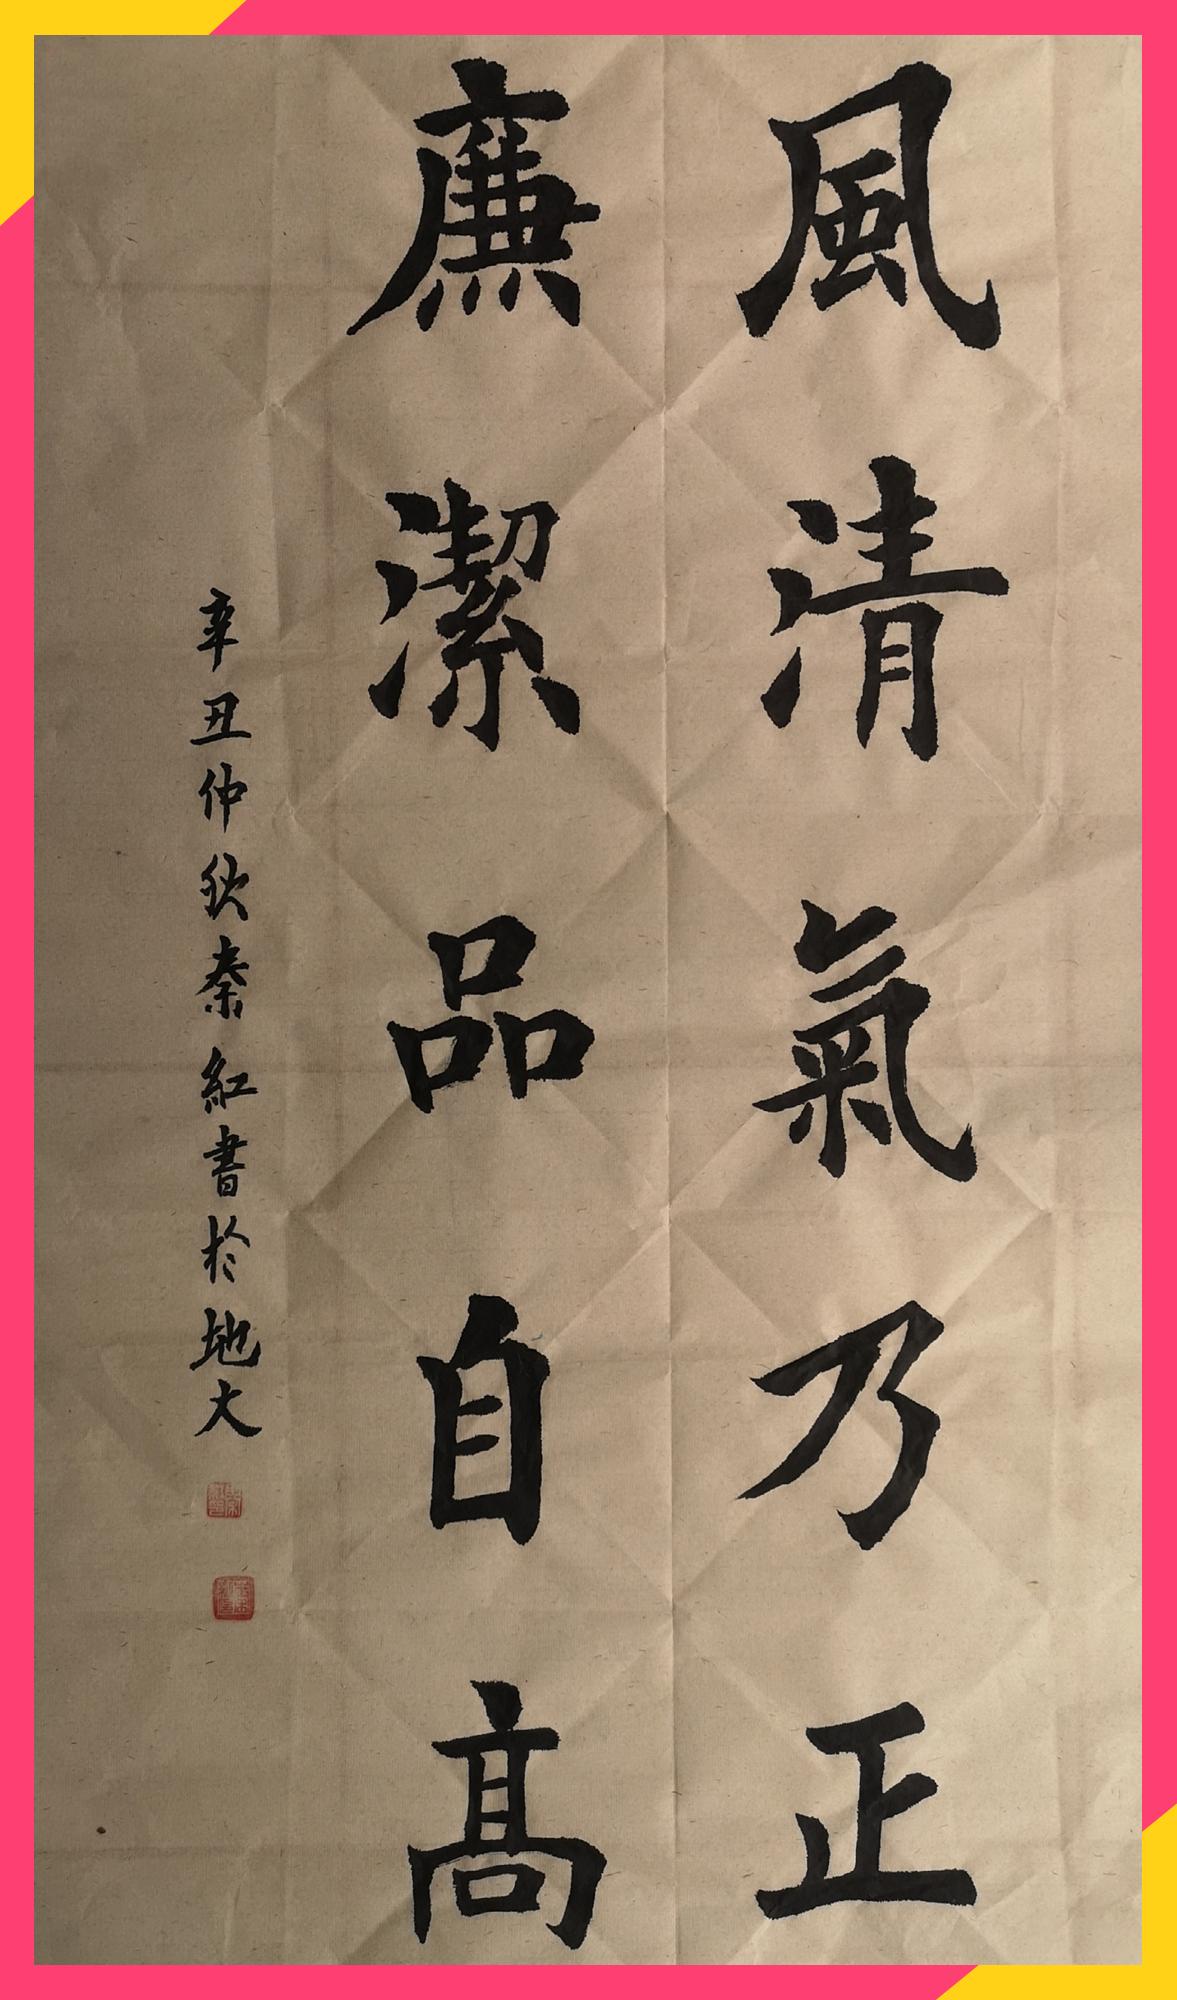 風清氣乃正
廉潔品自高
辛丑仲秋秦紅書於地大